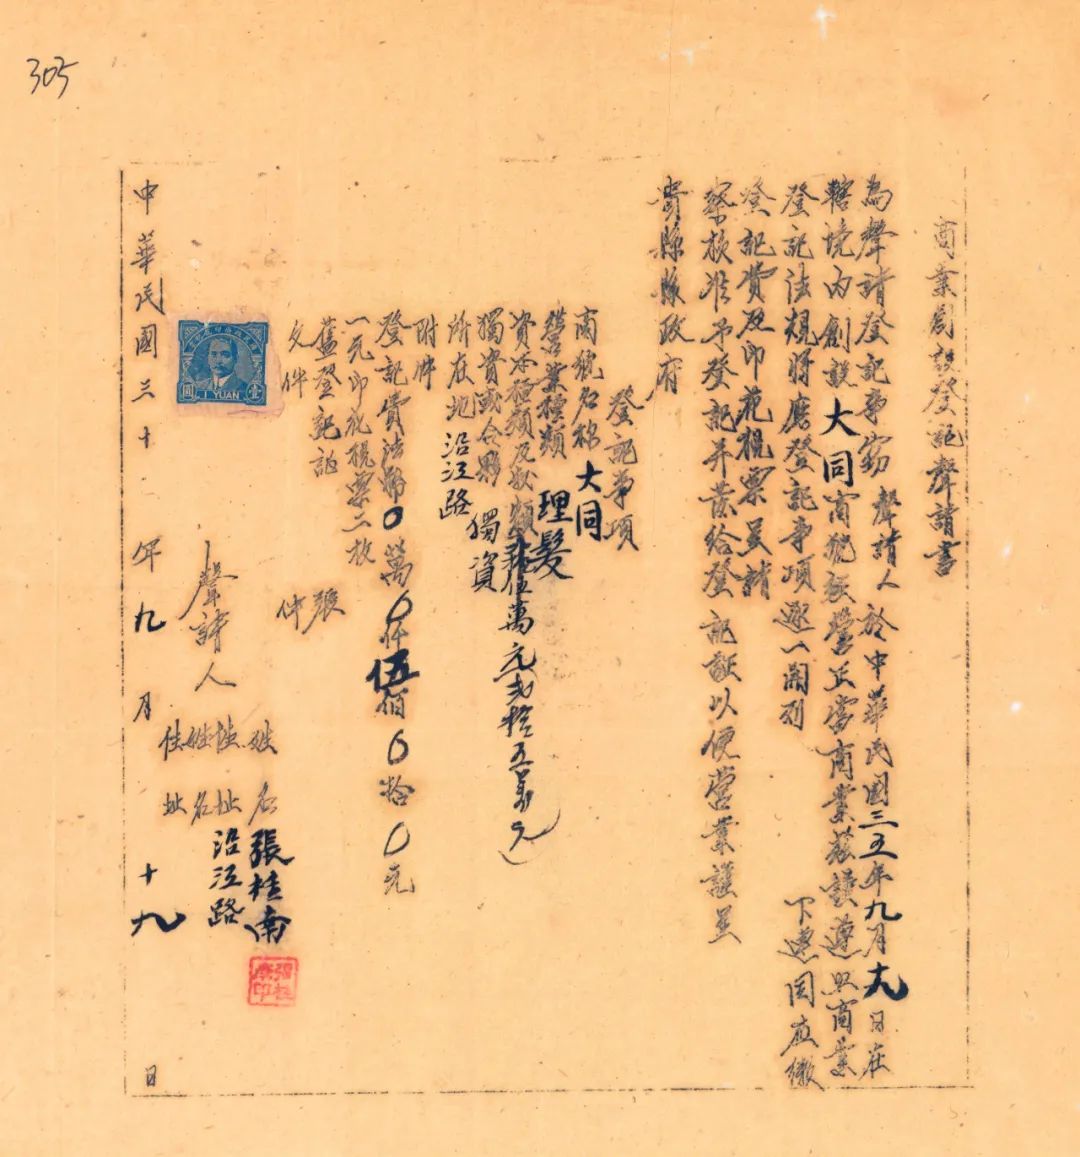 305
商業創設登記聲請書
為聲請登記事竊聲請人於中華民國三五年九月十九日在
轄境內創設大同商號經營正當商業茲謹遵照商業
登記法規將應登記事項逐一開列下遵同應繳
登記費及印花稅票呈請
察核准予登記并發給登記證以便營業謹呈
貴縣縣政府
登記事項
商號名稱 大同
營業種類 理髮
資本種類及數額 萬元弍拾五萬元
獨資或合夥 獨資
所在地 沿江路
附件
登記費法幣0萬0仟伍佰0拾0元
一元印花稅票二枚
舊登記証 張
文件 件
聲請人
姓名 張桂南
住址 沿江路
姓名
住址
壹圓
1 YUAN
中華民國三十 年九月十九日